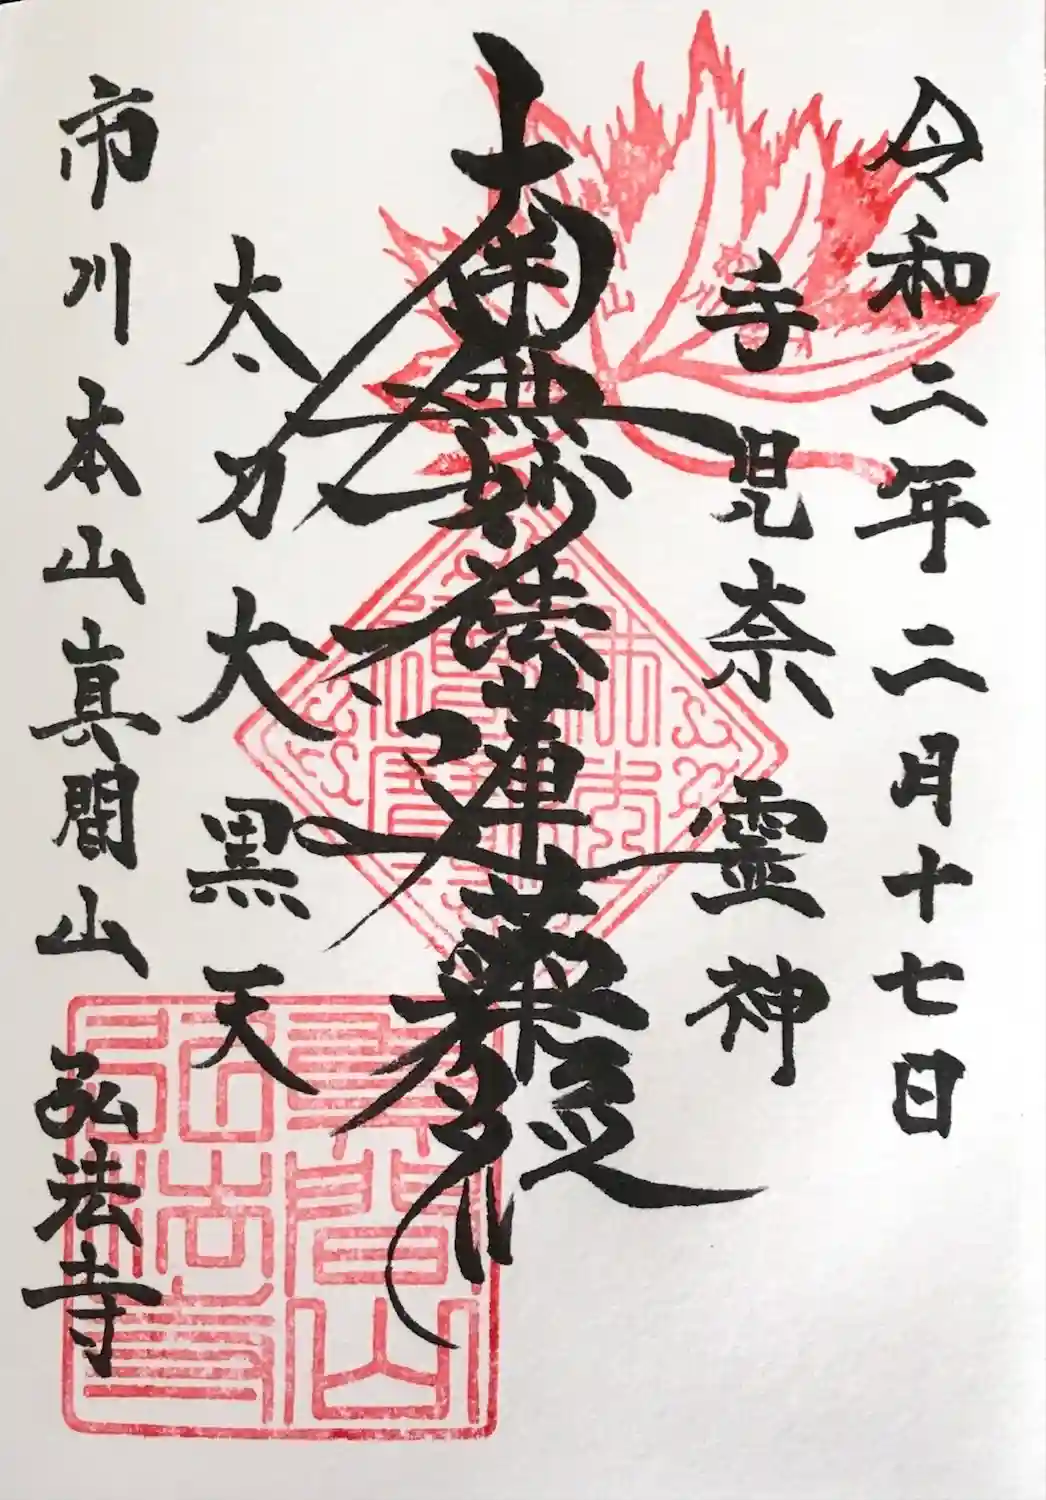 令和三年二月十七日
手児奈霊神
南無妙法蓮華経
太刀大黒天
市川本山真間山 弘法寺
真間山
弘法寺